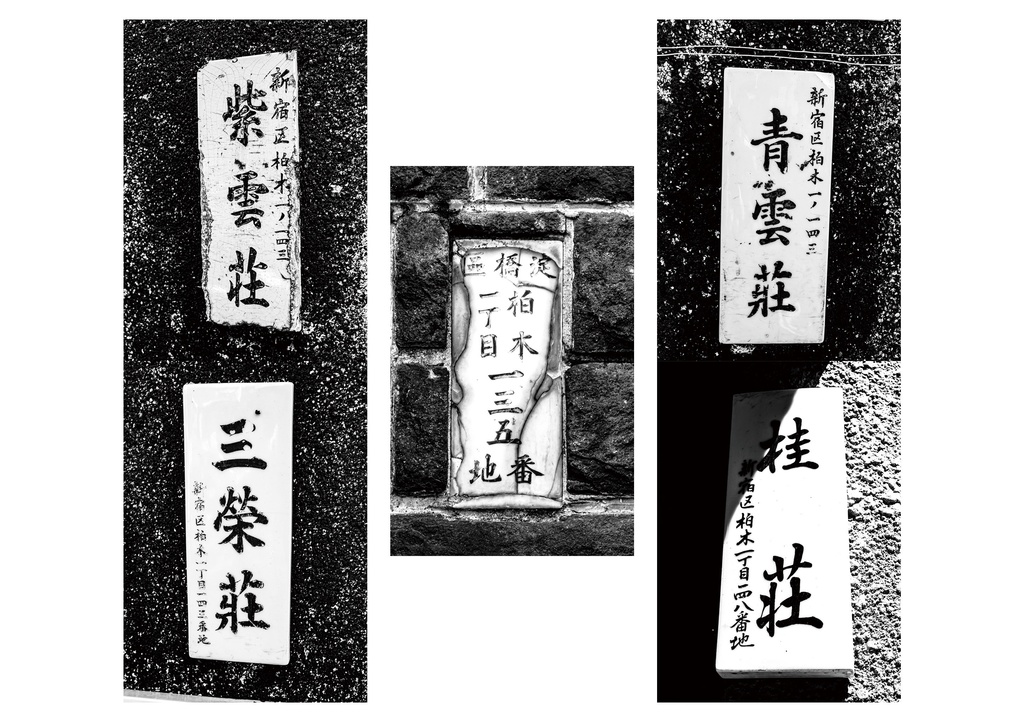 新宿区柏木一ノ一四三
紫雲荘
三榮荘
新宿区柏木一丁目一四三番地
淀橋區
柏木
一丁目
一三五
番地
新宿区柏木一ノ一四三
青雲莊
桂荘
新宿区柏木一丁目一四八番地